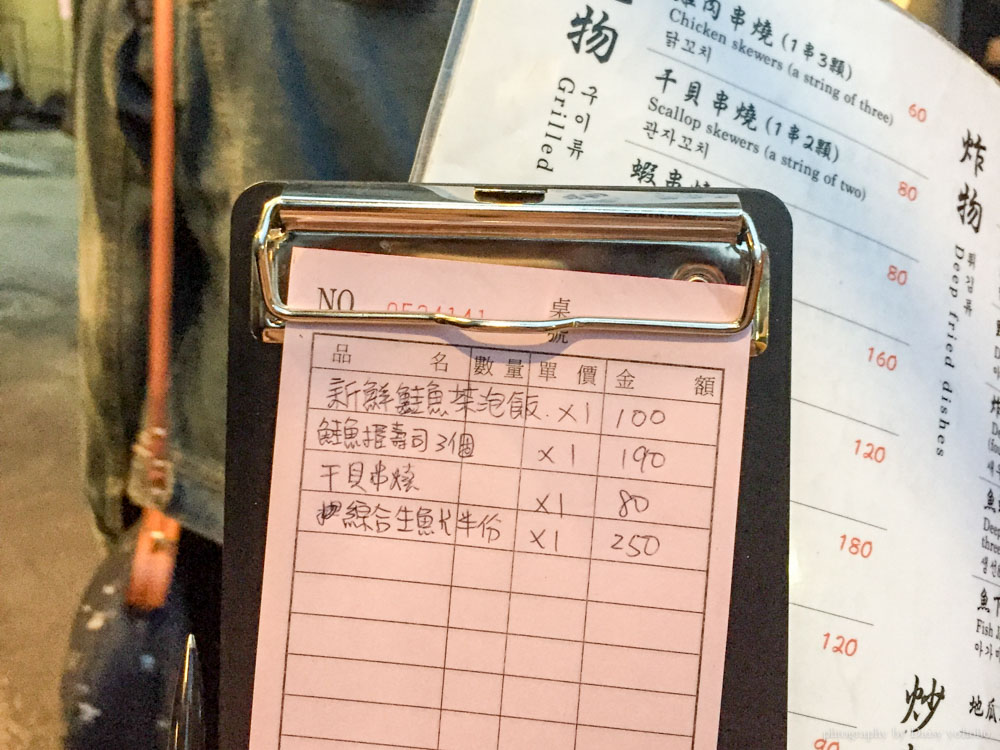 物
구이류
Grilled
雞肉串燒 (1串3顆)
Chicken skewers (a string of three)
닭꼬치
60
干貝串燒 (1串2顆)
Scallop skewers (a string of two)
관자꼬치
80
蝦串燒
80
160
120
180
120
炸物
튀김류
Deep fried dishes
炒
地瓜
NO 桌號
品名 數量 單價 金額
新鮮鮭魚茶泡飯 x1 100
鮭魚握壽司3個 x1 190
干貝串燒 x1 80
綜合生魚片半份 x1 250